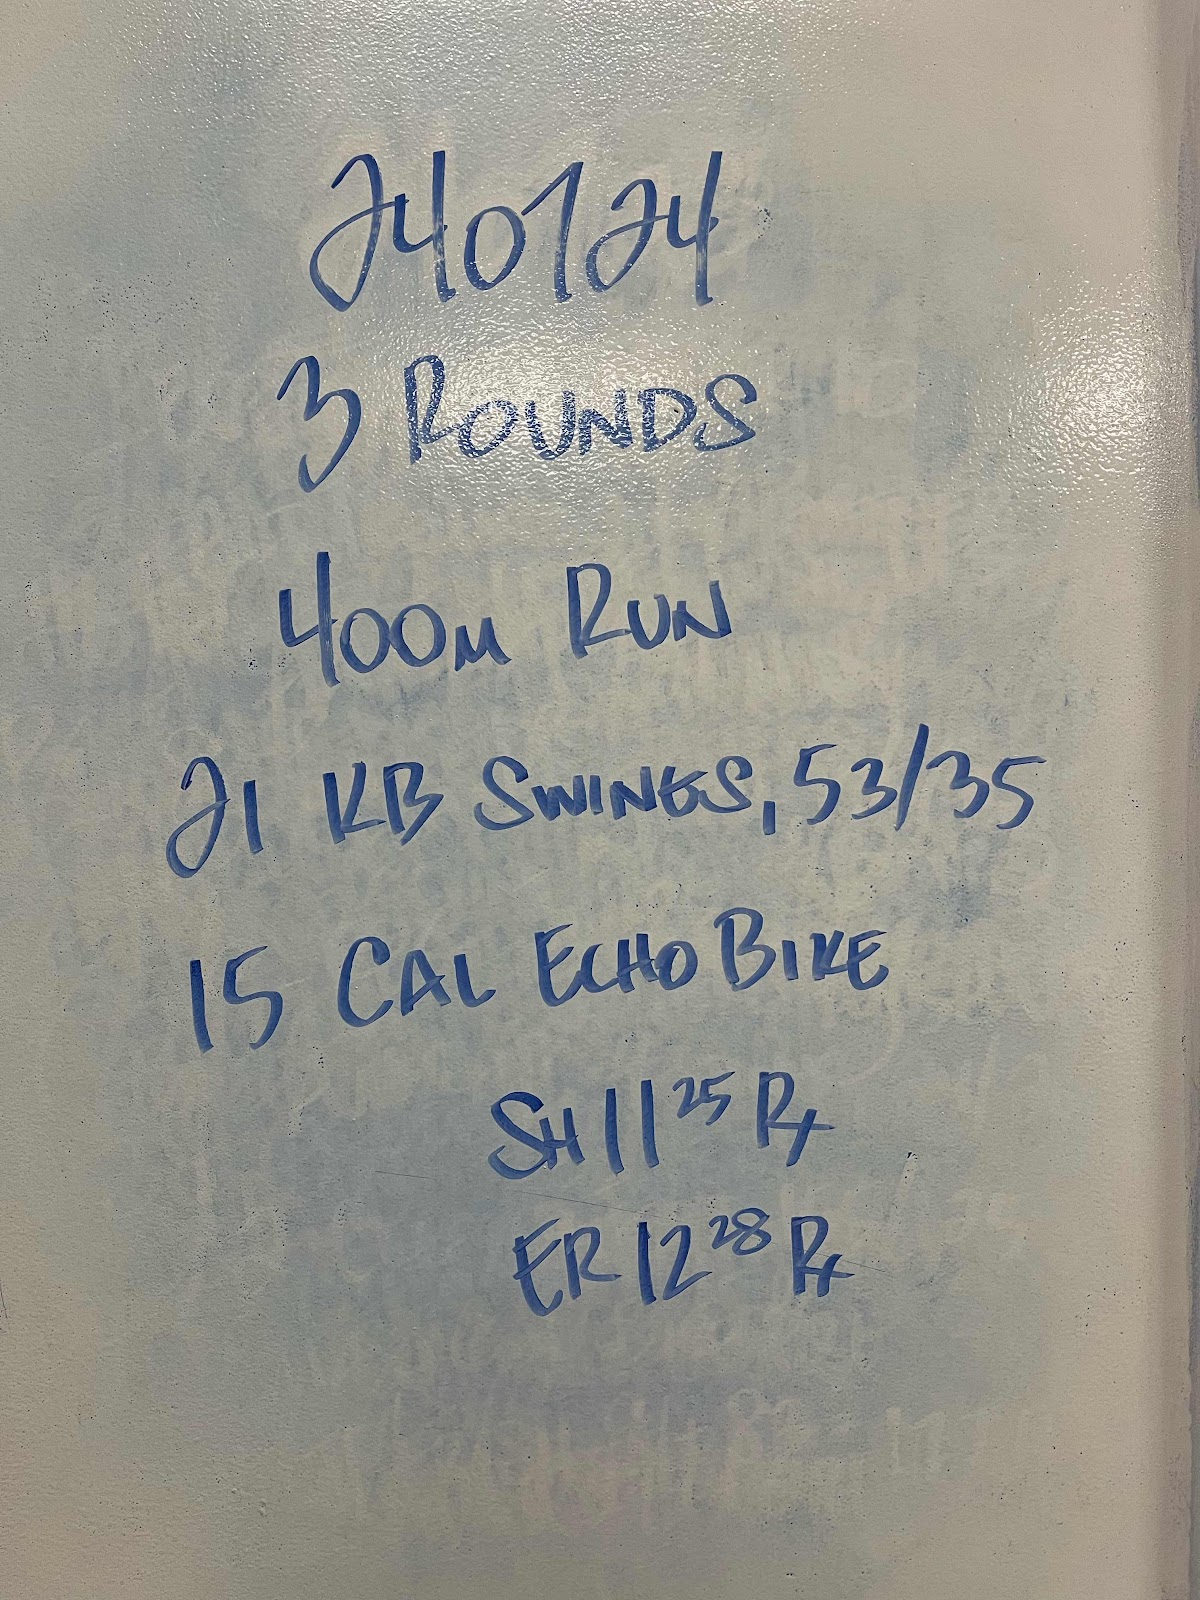 240724
3 ROUNDS
400M RUN
21 KB SWINGS, 53/35
15 CAL ECHO BIKE
SH 11 25 Rx
ER 12 28 Rx